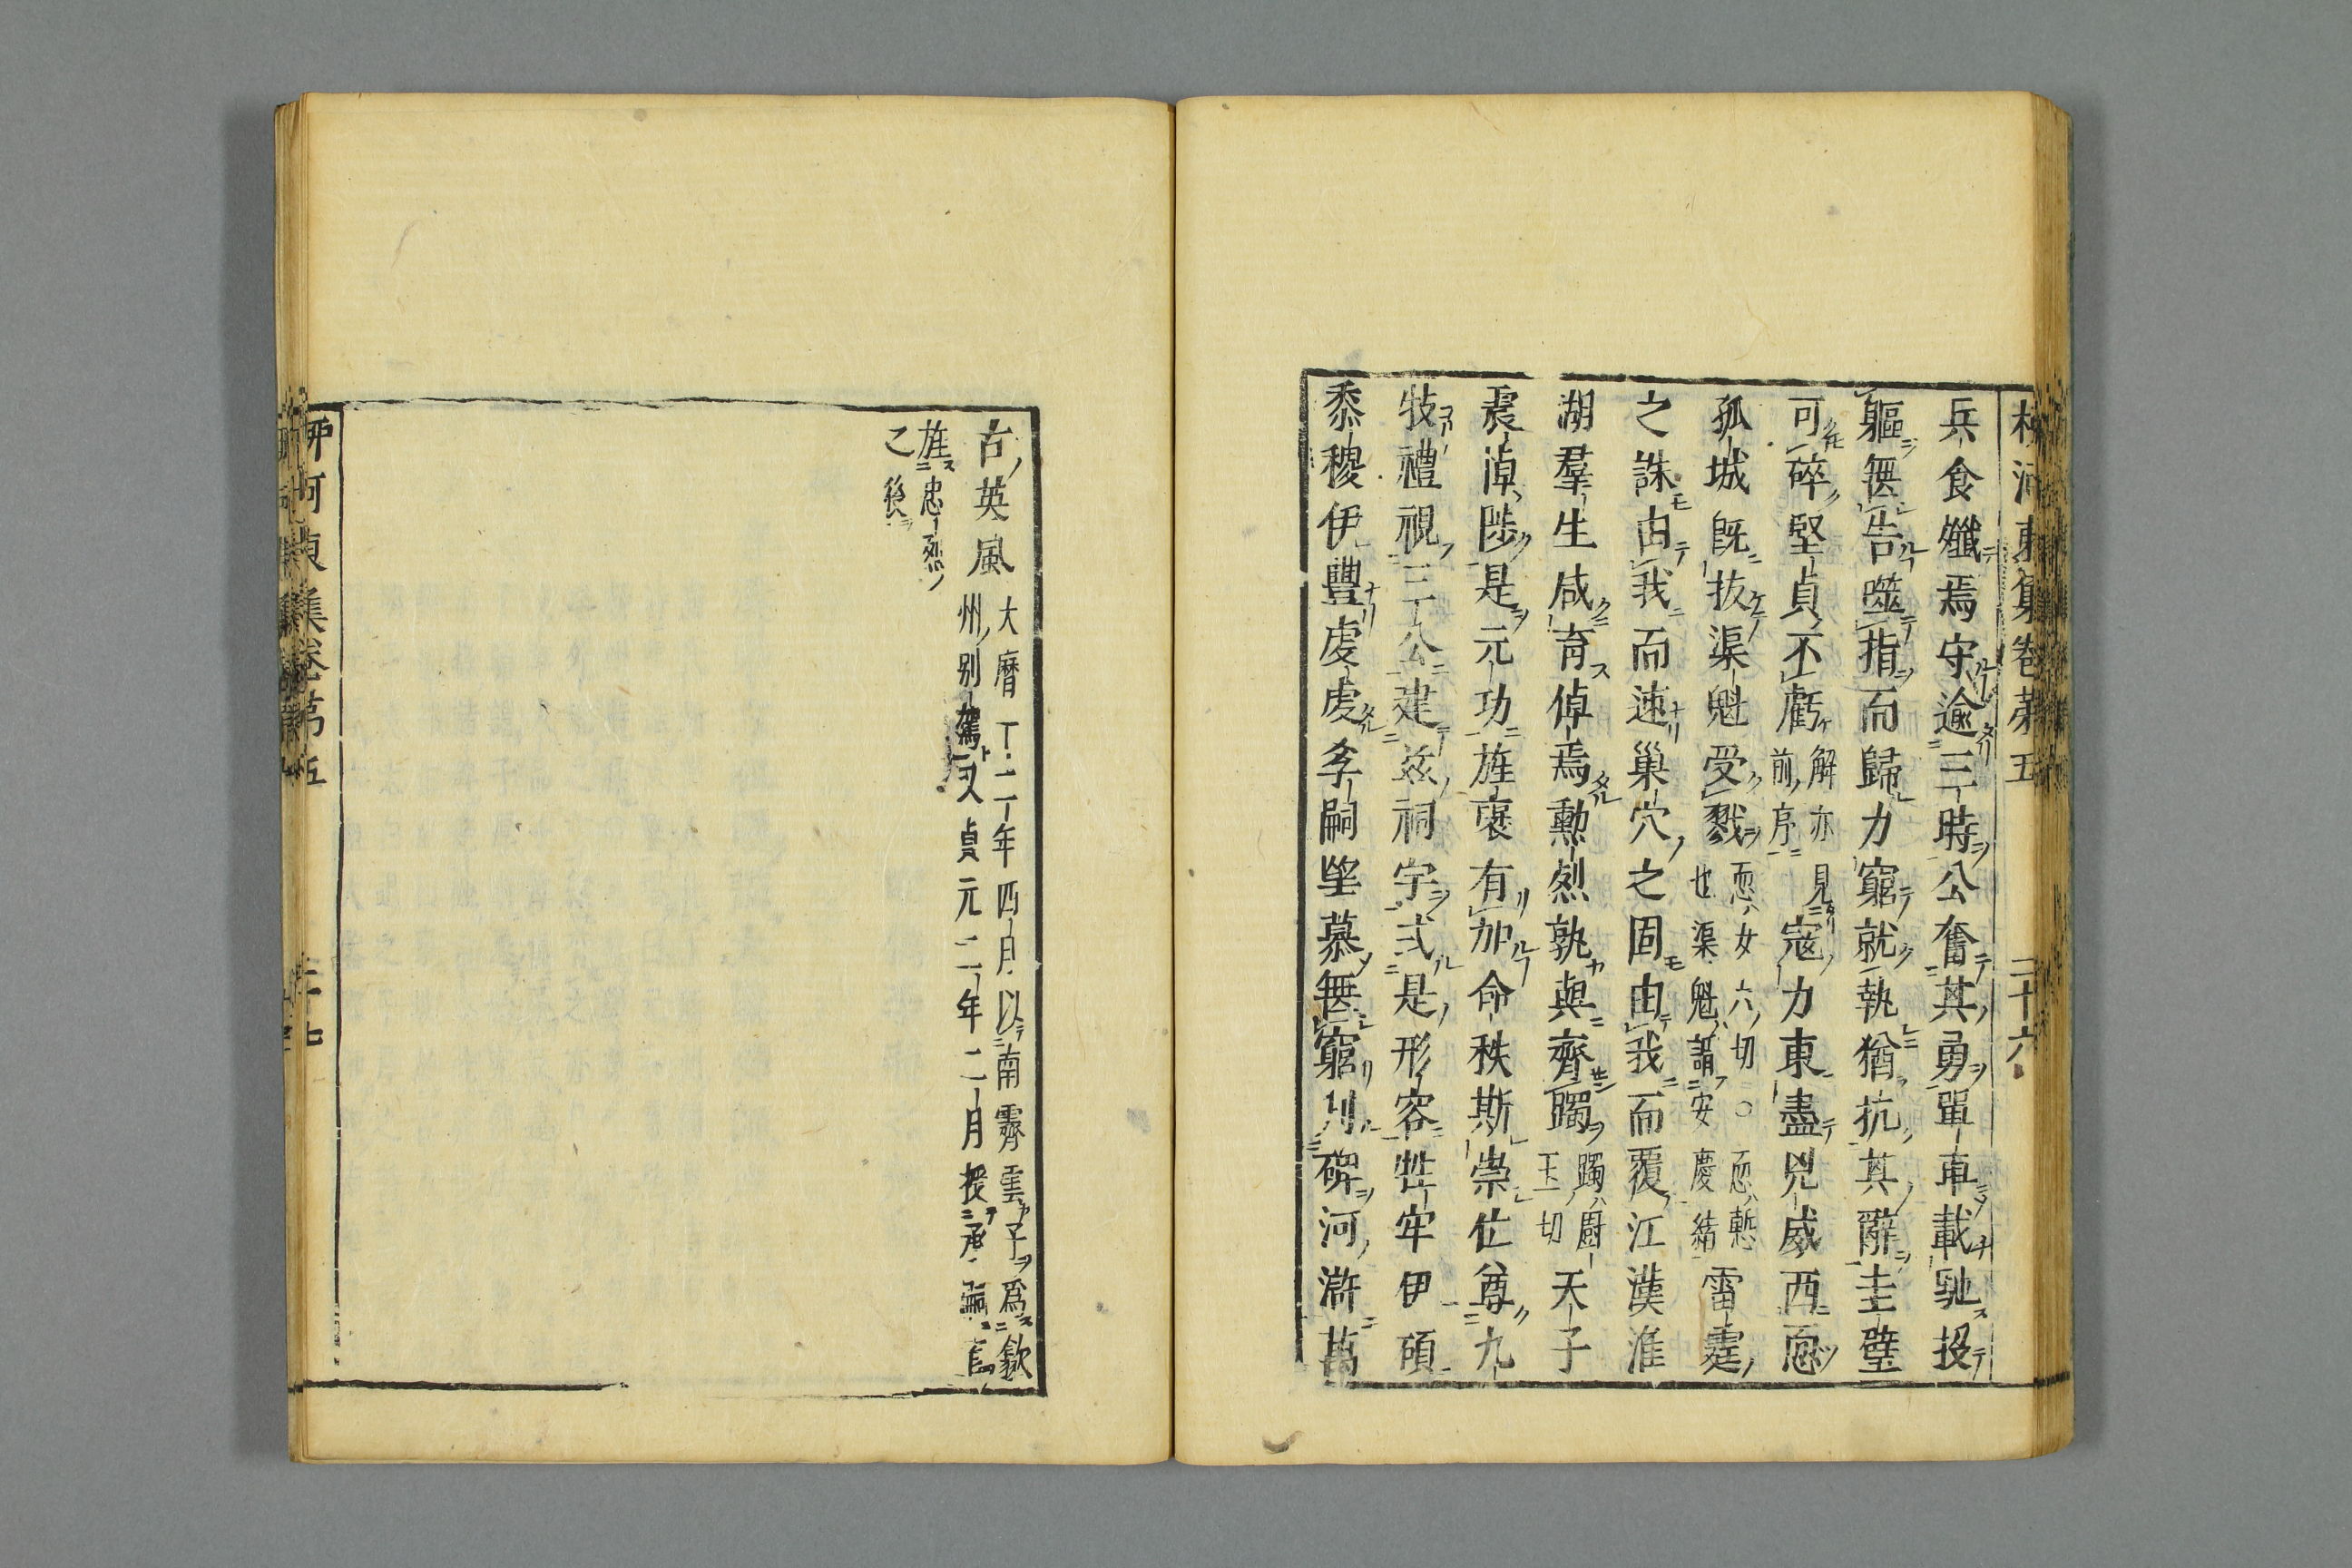 柳河東集卷第五 二十六
兵食殲焉守逾三時公奮其勇單車載馳投
軀無告噬指而歸力窮就執猶抗其辭圭璧
可碎堅貞不虧解亦見前序寇力東盡兇威西恧
孤城既拔渠魁受戮恧女六切○恧慙也渠魁謂安慶緒雷霆
之誅由我而速巢穴之固由我而覆江漢淮
湖羣生咸育倬焉勲烈孰與齊躅躅厨玉切天子
震悼陟是元功旌褒有加命秩斯崇位尊九
牧禮視三公建兹祠宇式是形容牲牢伊碩
黍稷伊豐虔虔孝嗣望慕無窮刋碑河滸萬
古英風大曆十二年四月以南霽雲子爲歙州别駕又貞元二年二月授承嗣官
旌忠烈之後
柳河東集卷第五 二十七